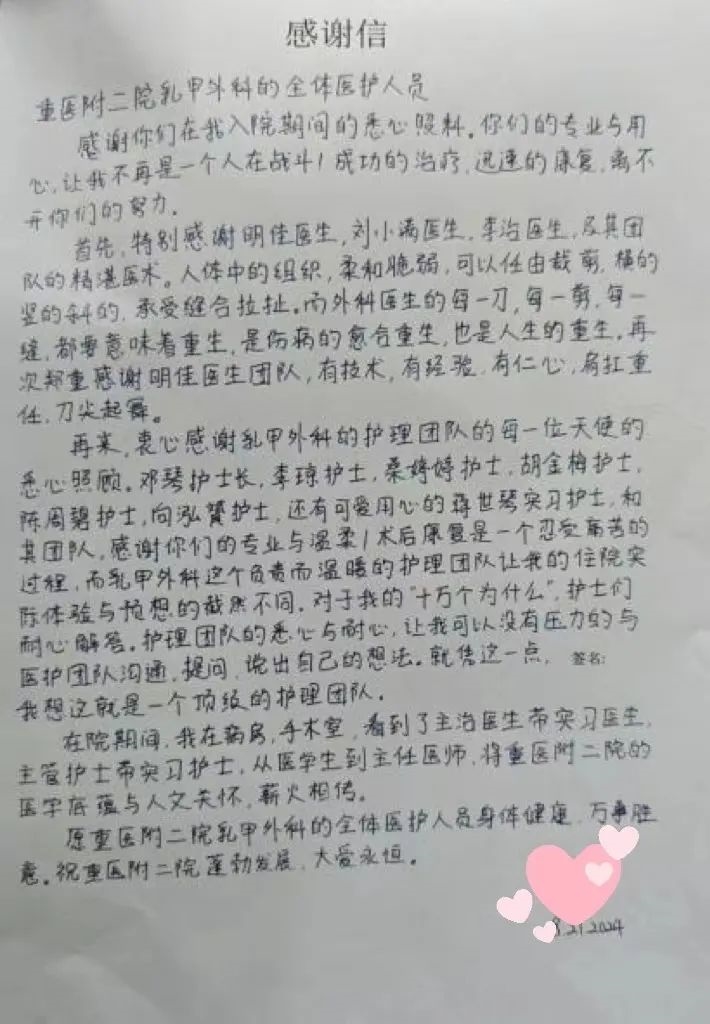 感谢信
重医附二院乳甲外科的全体医护人员
感谢你们在我入院期间的悉心照料。你们的专业与用
心,让我不再是一个人在战斗!成功的治疗,迅速的康复,离不
开你们的努力。
首先,特别感谢明佳医生,刘小满医生,李治医生,及其团
队的精湛医术。人体中的组织,柔和脆弱,可以任由裁剪,横的
竖的斜的,承受缝合拉扯。而外科医生的每一刀,每一剪,每一
缝,都要意味着重生,是伤病的愈合重生,也是人生的重生。再
次郑重感谢明佳医生团队,有技术,有经验,有仁心,肩扛重
任,刀尖起舞。
再来,衷心感谢乳甲外科的护理团队的每一位天使的
悉心照顾。邓琴护士长,李琼护士,桑婷婷护士,胡金梅护士,
陈周碧护士,向泓贇护士,还有可爱用心的蒋世琴实习护士,和
其团队,感谢你们的专业与温柔!术后康复是一个忍受痛苦的
过程,而乳甲外科这个负责而温暖的护理团队让我的住院实
际体验与预想的截然不同。对于我的“十万个为什么”,护士们
耐心解答。护理团队的悉心与耐心,让我可以没有压力的与
医护团队沟通,提问,说出自己的想法。就凭这一点, 签名:
我想这就是一个顶级的护理团队。
在院期间,我在病房,手术室,看到了主治医生带实习医生,
主管护士带实习护士,从医学生到主任医师,将重医附二院的
医学底蕴与人文关怀,薪火相传。
愿重医附二院乳甲外科的全体医护人员身体健康,万事胜
意。祝重医附二院蓬勃发展,大爱永恒。
8.21.2024